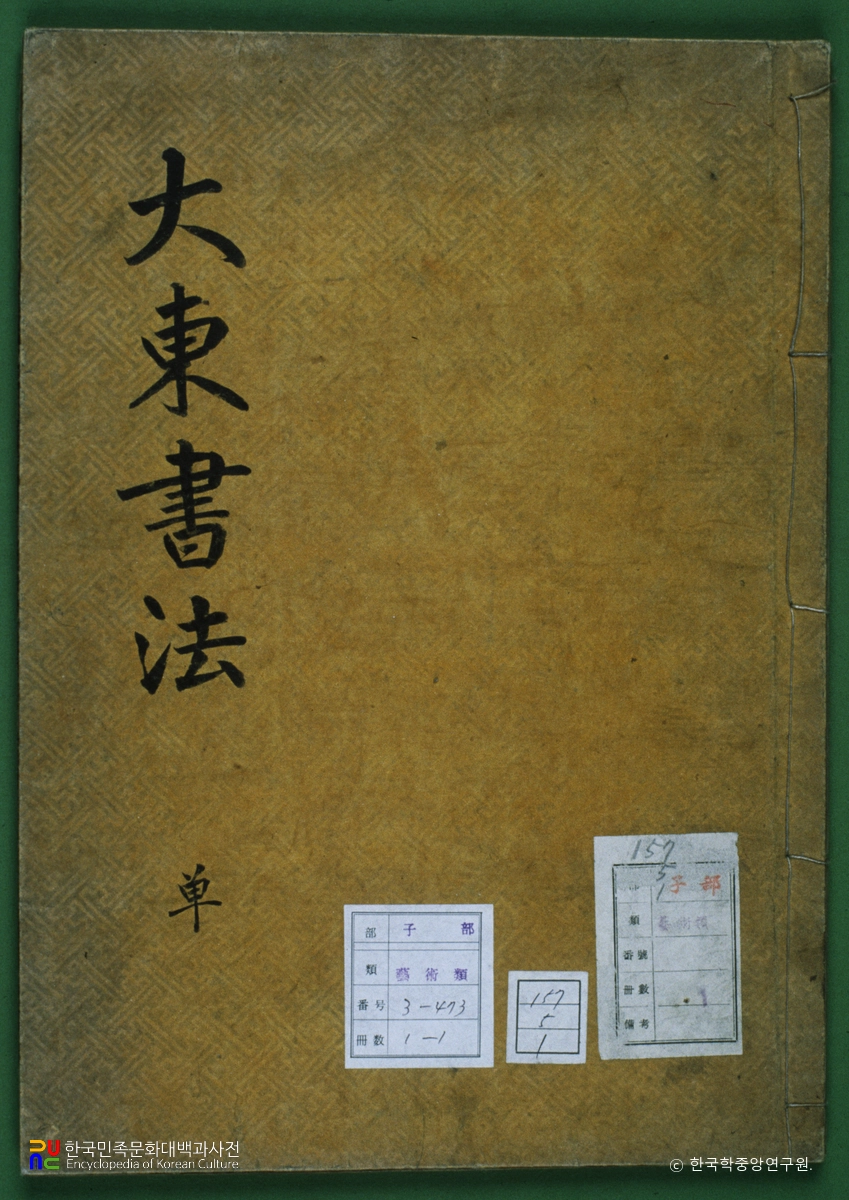 大東書法
単
部 子部
類 藝術類
番号 3-473
冊数 1-1
157
5
1
157
5
1
部 子部
類 藝術類
番號
冊數 1
備考
한국민족문화대백과사전
Encyclopedia of Korean Culture
© 한국학중앙연구원.